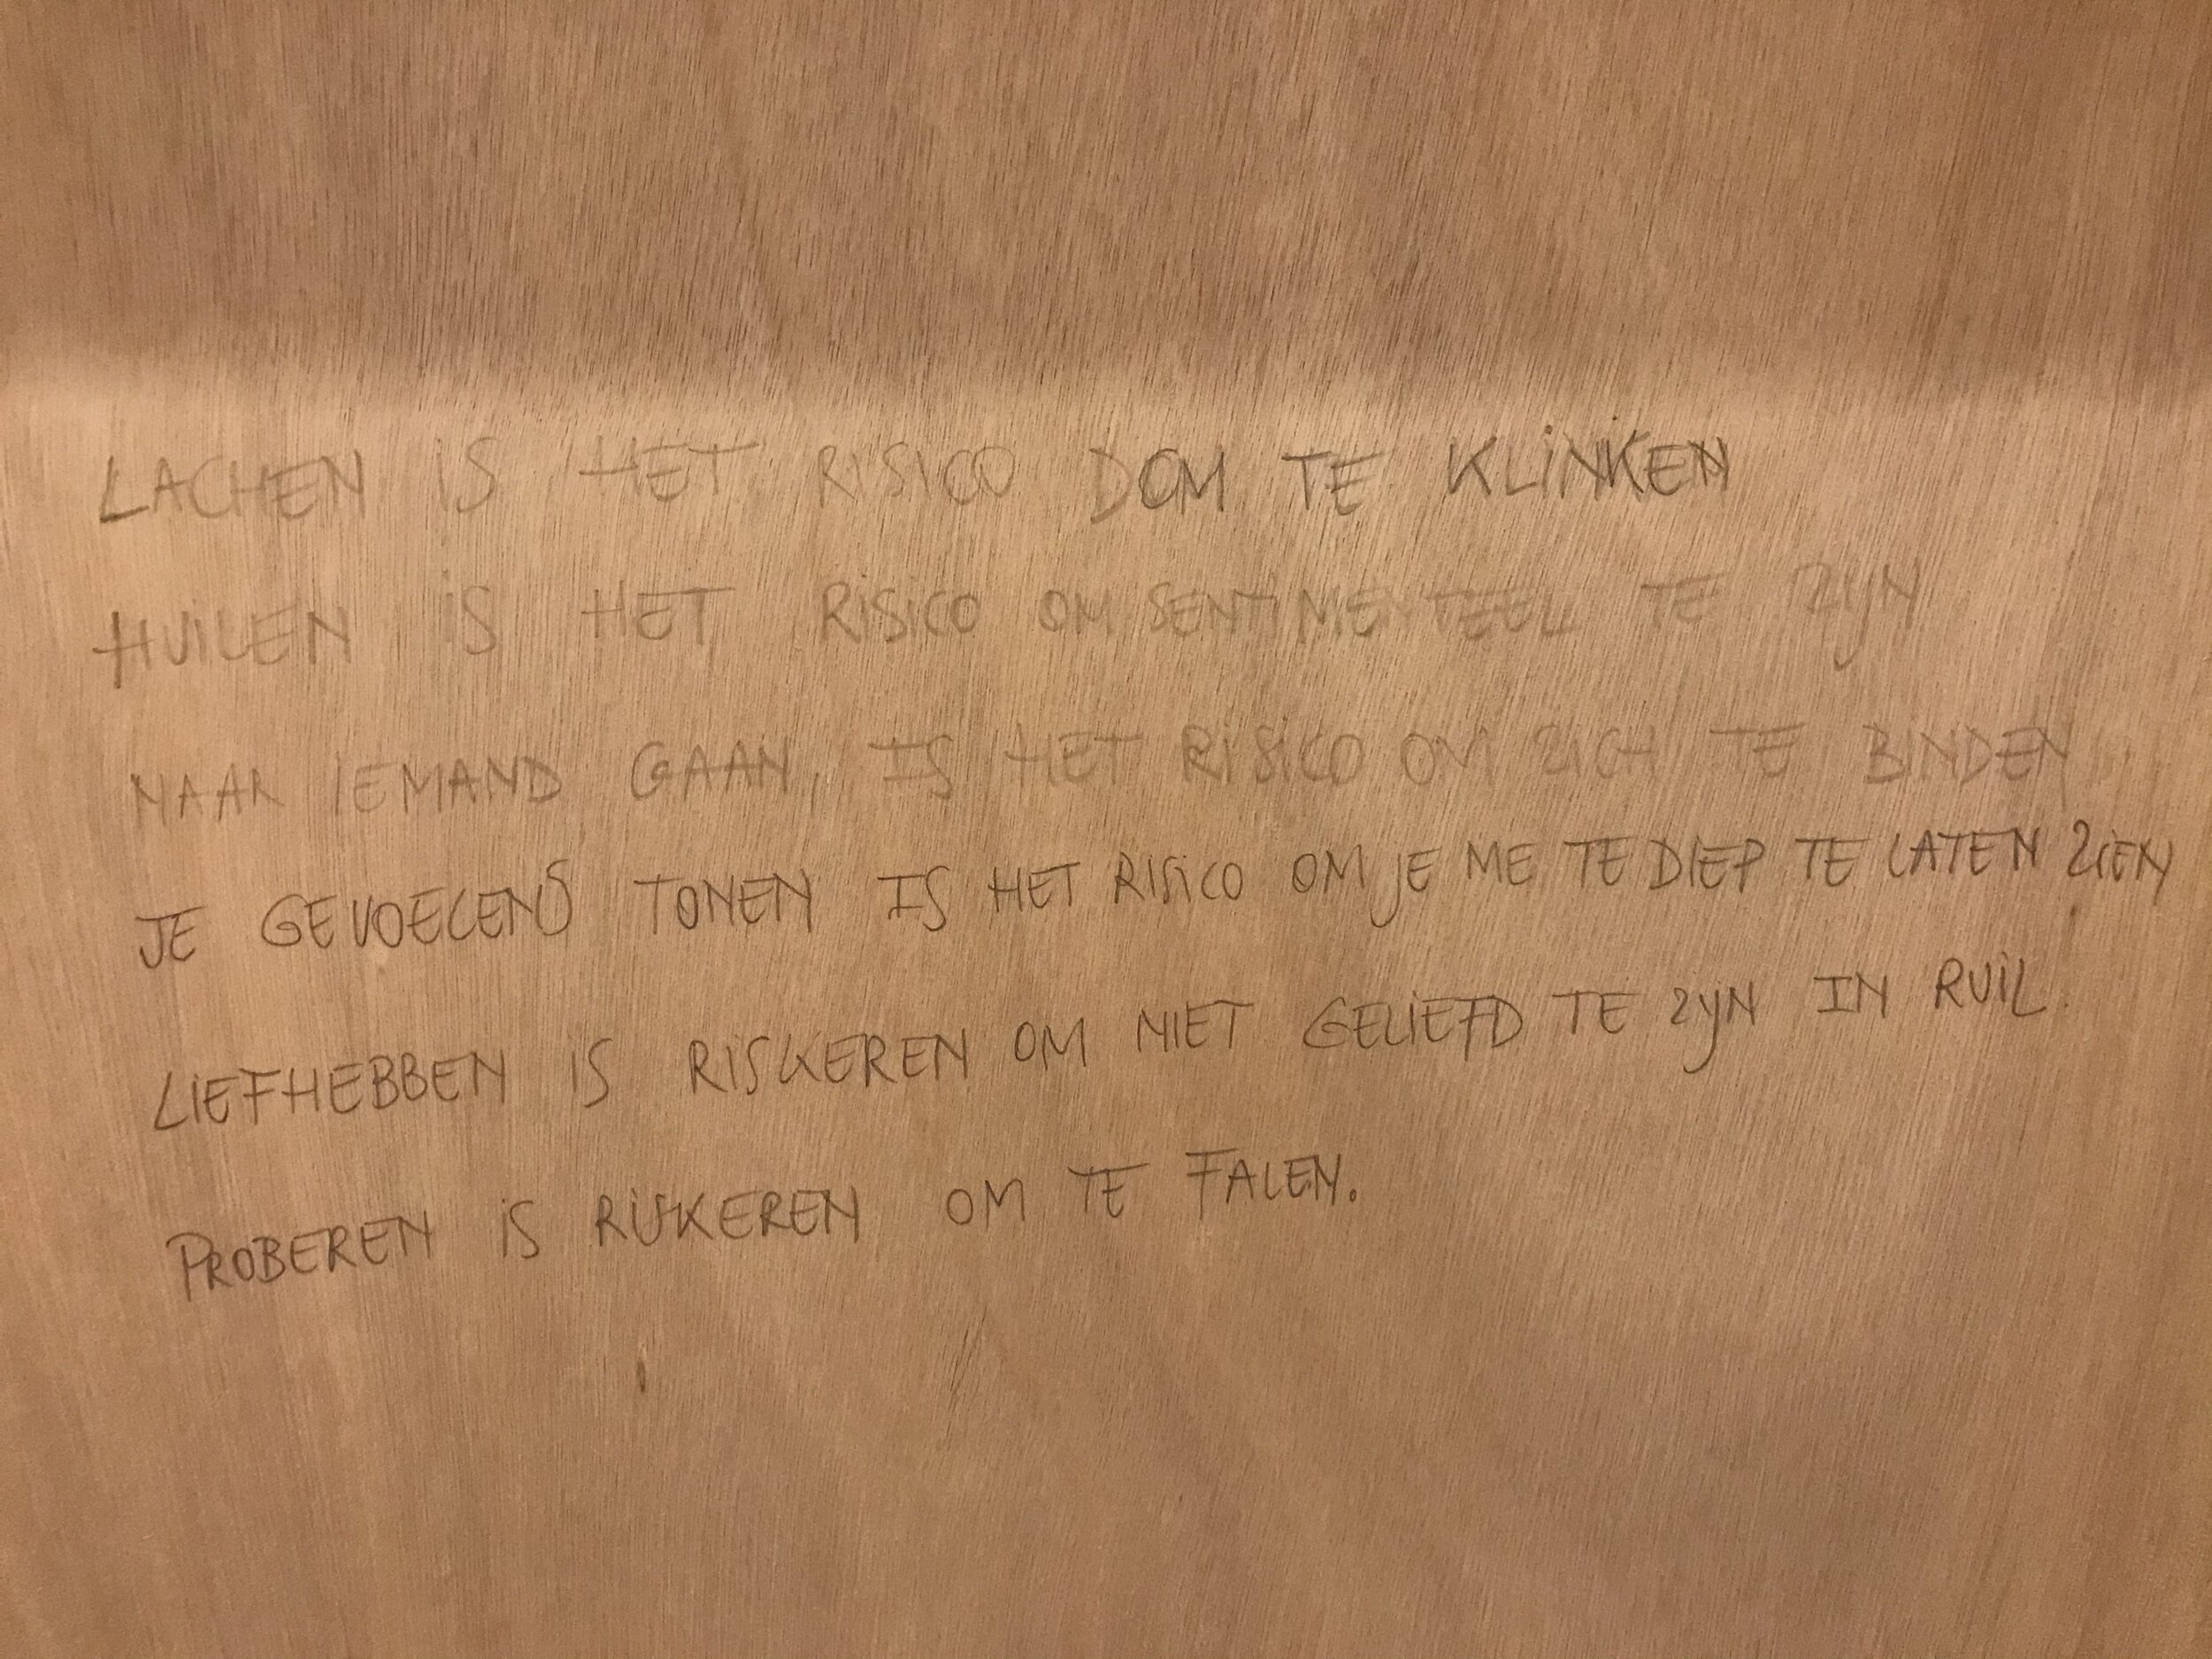 LACHEN IS HET RISICO DOM TE KLINKEN
HUILEN IS HET RISICO OM SENTIMENTEEL TE ZIJN
NAAR IEMAND GAAN, IS HET RISICO OM ZICH TE BINDEN
JE GEVOELENS TONEN IS HET RISICO OM JE ME TE DIEP TE LATEN ZIEN
LIEFHEBBEN IS RISKEREN OM NIET GELIEFD TE ZIJN IN RUIL.
PROBEREN IS RISKEREN OM TE FALEN.